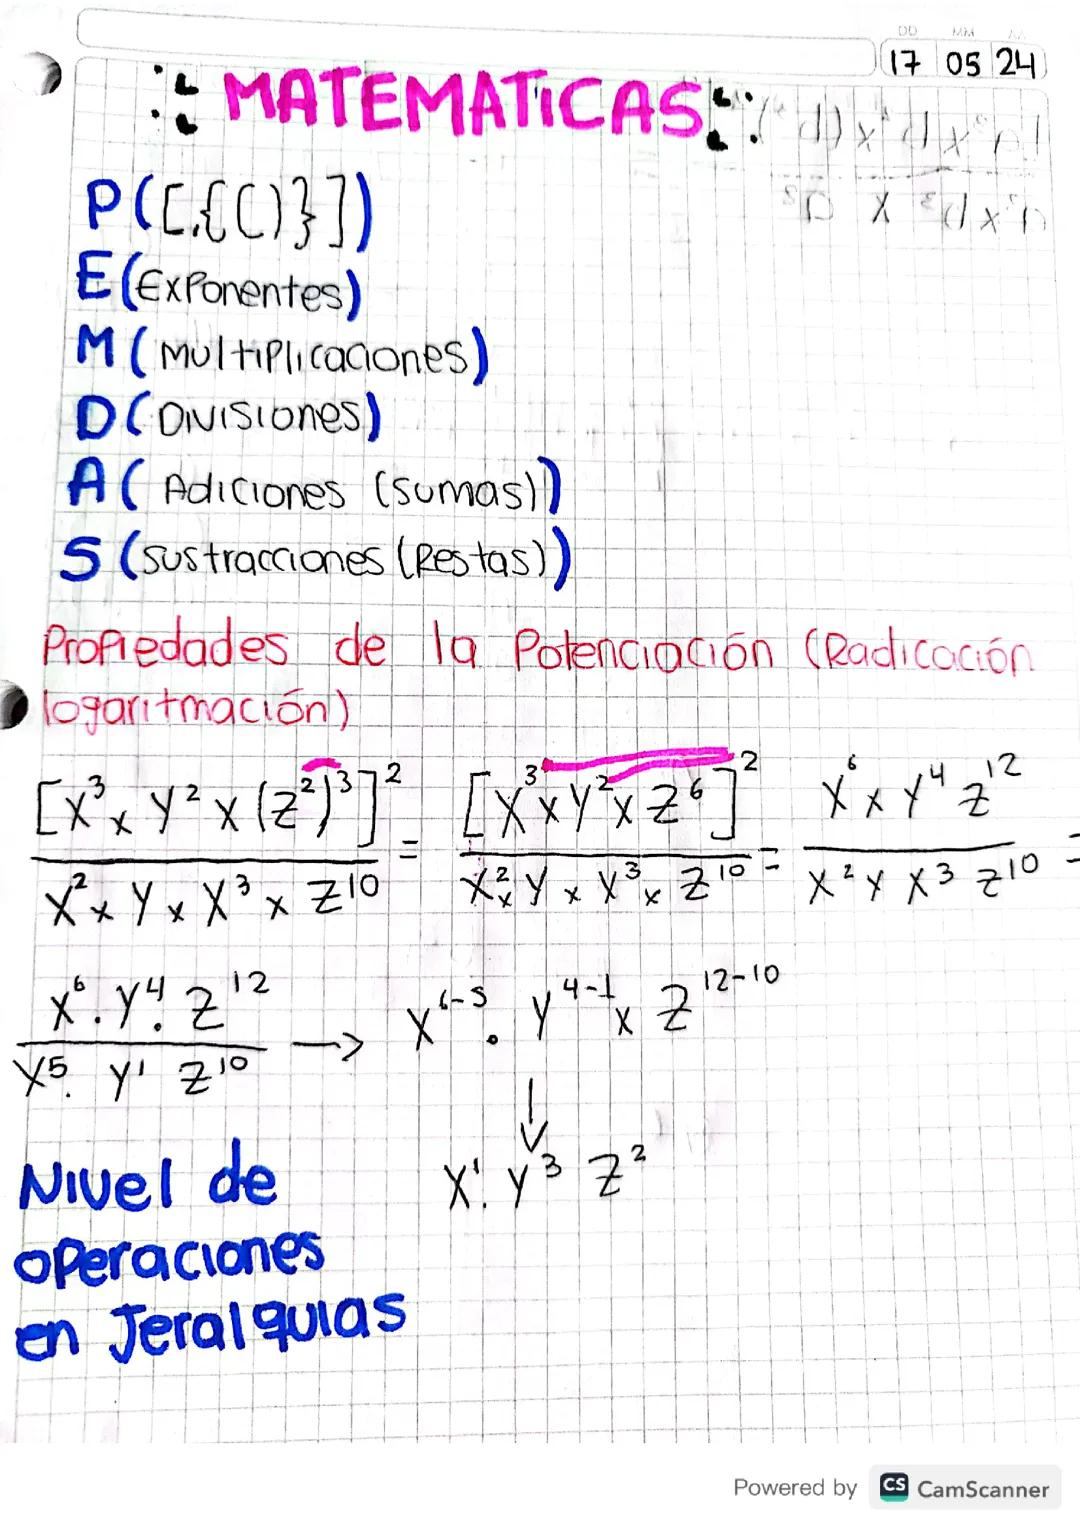 DD MM AA
17 05 24
MATEMATICAS
P([{()}])
E(Exponentes)
M(Multiplicaciones)
D(Divisiones)
A(Adiciones (sumas))
S(sustracciones (Restas))
Propiedades de la Potenciación (Radicación
logaritmación)
[x³ x y² x (z²)³]² / x² x y x x³ x z¹⁰ = [x³ x y² x z⁶]² / x² x y x x³ x z¹⁰ = x⁶ x y⁴ z¹² / x² y x³ z¹⁰ =
x⁶ . y⁴ . z¹² / x⁵ . y¹ z¹⁰ → x⁶⁻⁵ . y⁴⁻¹ x z¹²⁻¹⁰
↓
x¹ . y³ z²
Nivel de
operaciones
en Jeralquias
Powered by CS CamScanner